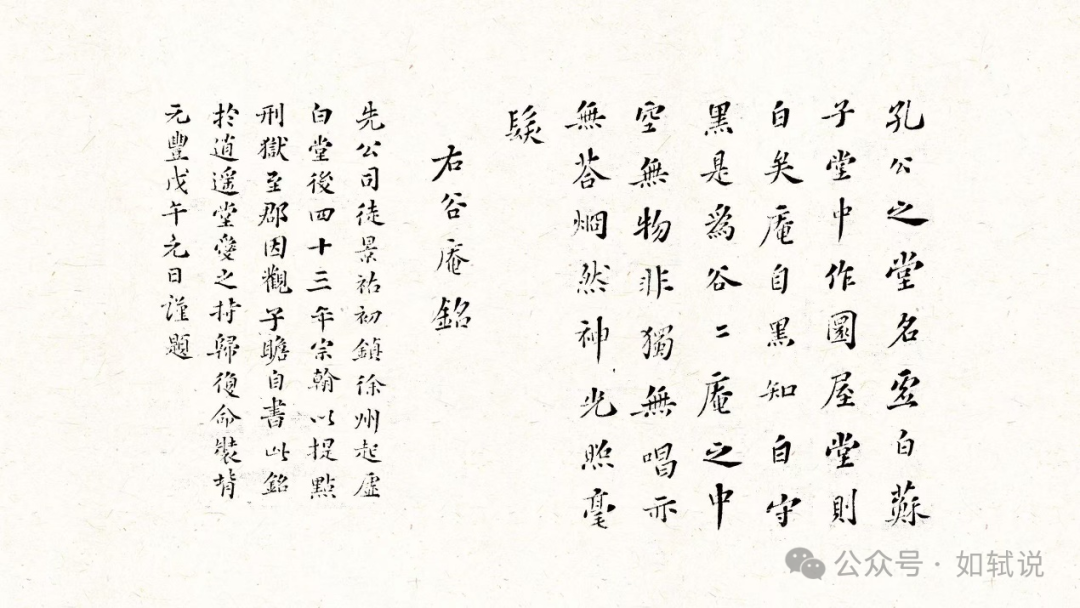 孔公之堂名虛白蘇
子堂中作圜屋堂則
白矣庵自黑知白守
黑是為谷二庵之中
空無物非獨無唱亦
無荅烱然神光照毫
髮
右谷庵銘
先公司徒景祐初鎮徐州起虛
白堂後四十三年宗翰以提點
刑獄至郡因觀子瞻自書此銘
扵逍遥堂愛之持歸復命裝背
元豐戊午元日謹題
公众号·如轼说